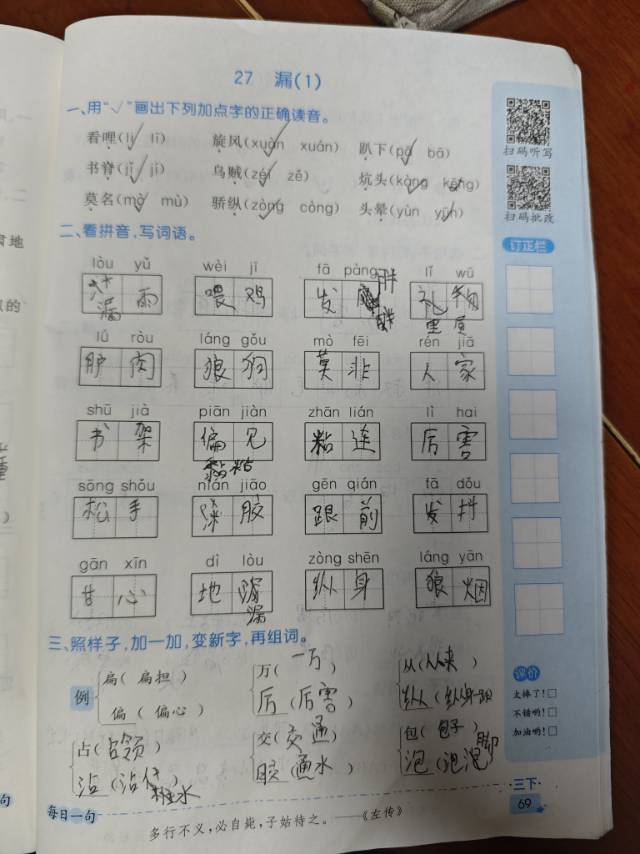 27 漏(1)
一、用“√”画出下列加点字的正确读音。
看哩(li lī) 旋风(xuàn xuán) 趴下(pā bā)
书脊(jǐ jí) 乌贼(zéi zě) 炕头(kàng kēng)
莫名(mò mù) 骄纵(zòng còng) 头晕(yùn yūn)
扫码听写
扫码批改
订正栏
二、看拼音,写词语。
lòu yǔ wèi jī fā pàng lǐ wū
漏雨 喂鸡 发胖 礼物
里屋
lǘ ròu láng gǒu mò fēi rén jiā
驴肉 狼狗 莫非 人家
shū jià piān jiàn zhān lián lì hai
书架 偏见 粘连 厉害
黏粘
sōng shǒu nián jiāo gēn qián fā dǒu
松手 胶 跟前 发抖
gān xīn dì lòu zòng shēn láng yān
甘心 地 纵身 狼烟
漏
三、照样子,加一加,变新字,再组词。
例 扁(扁担) 万(一万) 从(从来)
偏(偏心) 厉(厉害) 纵(纵身一跃)
占(占领) 交(交通) 包(包子)
沾(沾 ) 胶(胶水) 泡(泡泡)
沾水 泡脚
评价
太棒了!
不错哟!
加油哟!
每日一句
多行不义,必自毙,子姑待之。——《左传》
三下
69